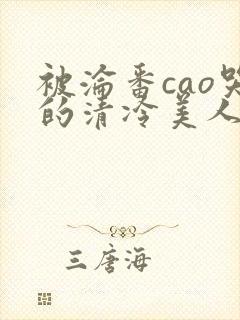 被淪番cao哭
的清冷美人
三唐海